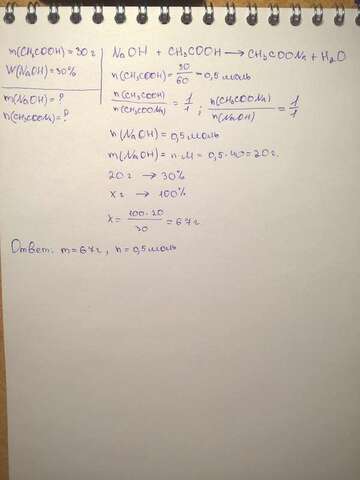 m(CH₃COOH) = 30 г
W(NaOH) = 30%
m(NaOH) = ?
n(CH₃COONa) = ?
NaOH + CH₃COOH → CH₃COONa + H₂O
n(CH₃COOH) = 30/60 = 0,5 моль
n(CH₃COOH)/n(CH₃COONa) = 1/1 ; n(CH₃COONa)/n(NaOH) = 1/1
n(NaOH) = 0,5 моль
m(NaOH) = n·M = 0,5·40 = 20 г.
20 г → 30%
x г → 100%
x = 100·20/30 = 67 г
Ответ: m = 67 г, n = 0,5 моль